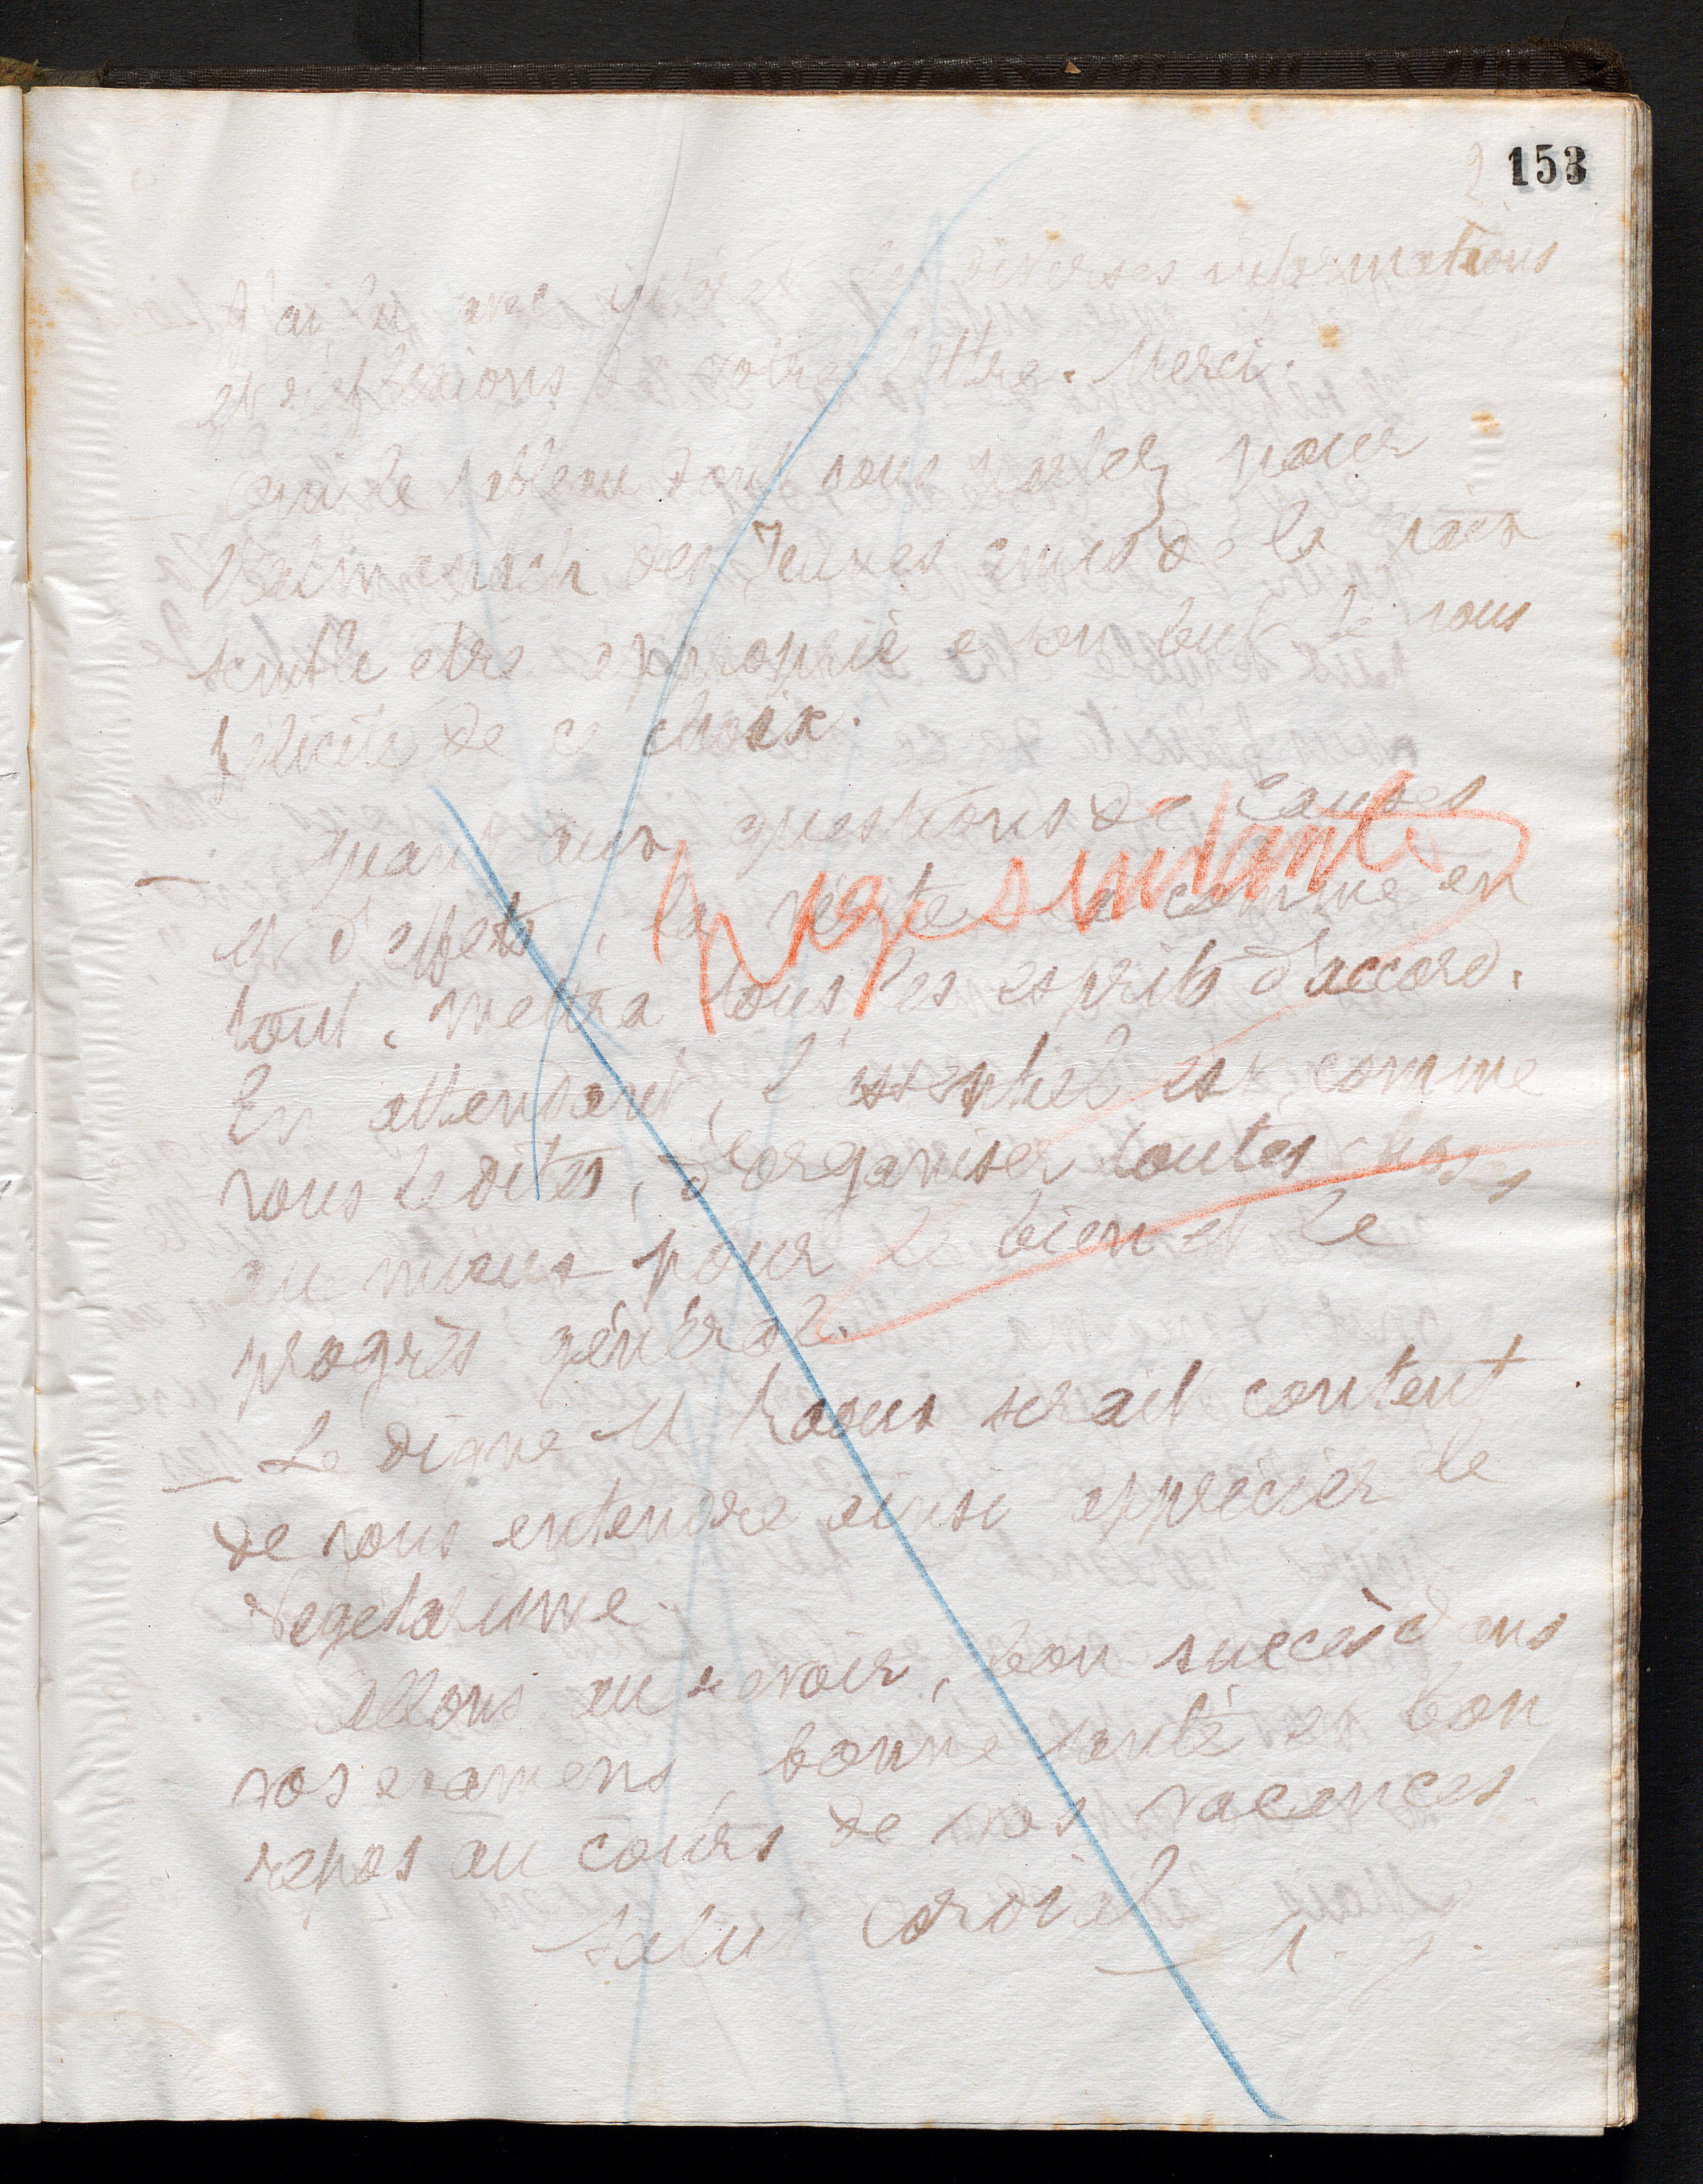 2
153
J'ai lu avec intérêt les diverses informations
et réflexions de votre lettre. Merci.
Oui le tableau dont vous parlez pour
l'almanach des Jeunes amis de la paix
semble être approprié à son but. Je vous
félicite de ce choix.
Quant aux questions de Causes
et d'effets, la vérité là comme en
page suivante
tout, mettra tous les esprits d'accord.
En attendant, l'essentiel est, comme
vous le dites, d'organiser toutes choses
au mieux pour le bien et le
progrès général.
Le digne M. serait content
de vous entendre ainsi apprécier le
Végétarisme.
Allons au revoir, bon succès dans
vos examens, bonne santé et bon
repos au cours de vos vacances.
Salut Cordial